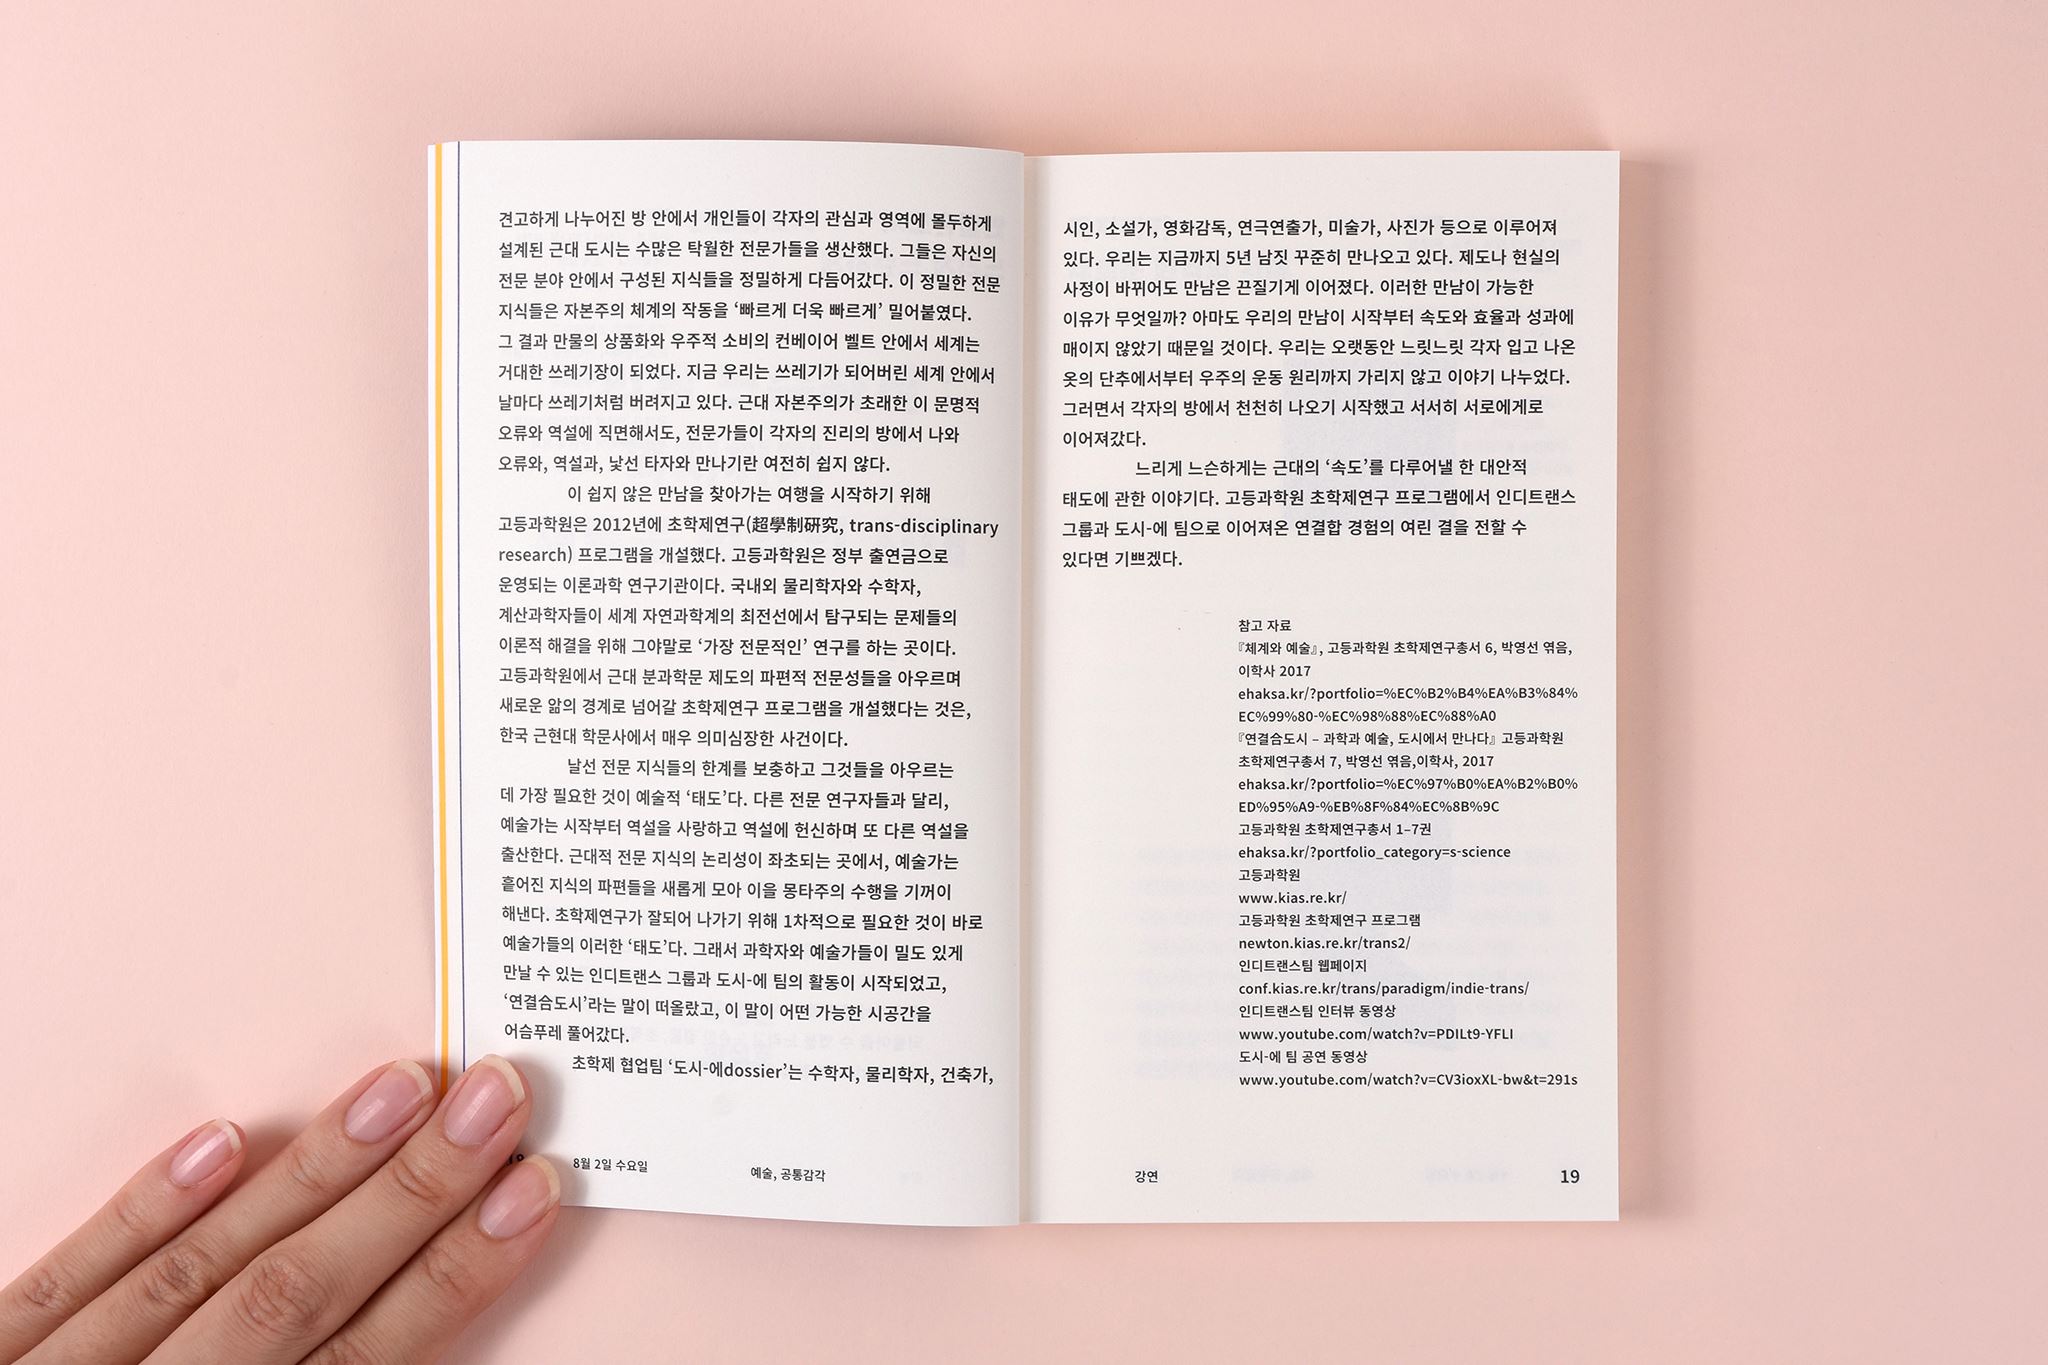 견고하게 나누어진 방 안에서 개인들이 각자의 관심과 영역에 몰두하게
설계된 근대 도시는 수많은 탁월한 전문가들을 생산했다. 그들은 자신의
전문 분야 안에서 구성된 지식들을 정밀하게 다듬어갔다. 이 정밀한 전문
지식들은 자본주의 체계의 작동을 ‘빠르게 더욱 빠르게’ 밀어붙였다.
그 결과 만물의 상품화와 우주적 소비의 컨베이어 벨트 안에서 세계는
거대한 쓰레기장이 되었다. 지금 우리는 쓰레기가 되어버린 세계 안에서
날마다 쓰레기처럼 버려지고 있다. 근대 자본주의가 초래한 이 문명적
오류와 역설에 직면해서도, 전문가들이 각자의 진리의 방에서 나와
오류와, 역설과, 낯선 타자와 만나기란 여전히 쉽지 않다.
이 쉽지 않은 만남을 찾아가는 여행을 시작하기 위해
고등과학원은 2012년에 초학제연구(超學制研究, trans-disciplinary
research) 프로그램을 개설했다. 고등과학원은 정부 출연금으로
운영되는 이론과학 연구기관이다. 국내외 물리학자와 수학자,
계산과학자들이 세계 자연과학계의 최전선에서 탐구되는 문제들의
이론적 해결을 위해 그야말로 ‘가장 전문적인’ 연구를 하는 곳이다.
고등과학원에서 근대 분과학문 제도의 파편적 전문성들을 아우르며
새로운 앎의 경계로 넘어갈 초학제연구 프로그램을 개설했다는 것은,
한국 근현대 학문사에서 매우 의미심장한 사건이다.
날선 전문 지식들의 한계를 보충하고 그것들을 아우르는
데 가장 필요한 것이 예술적 ‘태도’다. 다른 전문 연구자들과 달리,
예술가는 시작부터 역설을 사랑하고 역설에 헌신하며 또 다른 역설을
출산한다. 근대적 전문 지식의 논리성이 좌초되는 곳에서, 예술가는
흩어진 지식의 파편들을 새롭게 모아 이을 몽타주의 수행을 기꺼이
해낸다. 초학제연구가 잘되어 나가기 위해 1차적으로 필요한 것이 바로
예술가들의 이러한 ‘태도’다. 그래서 과학자와 예술가들이 밀도 있게
만날 수 있는 인디트랜스 그룹과 도시-에 팀의 활동이 시작되었고,
‘연결합도시’라는 말이 떠올랐고, 이 말이 어떤 가능한 시공간을
어슴푸레 풀어갔다.
초학제 협업팀 ‘도시-에dossier’는 수학자, 물리학자, 건축가,
8월 2일 수요일
예술, 공통감각
시인, 소설가, 영화감독, 연극연출가, 미술가, 사진가 등으로 이루어져
있다. 우리는 지금까지 5년 남짓 꾸준히 만나오고 있다. 제도나 현실의
사정이 바뀌어도 만남은 끈질기게 이어졌다. 이러한 만남이 가능한
이유가 무엇일까? 아마도 우리의 만남이 시작부터 속도와 효율과 성과에
매이지 않았기 때문일 것이다. 우리는 오랫동안 느릿느릿 각자 입고 나온
옷의 단추에서부터 우주의 운동 원리까지 가리지 않고 이야기 나누었다.
그러면서 각자의 방에서 천천히 나오기 시작했고 서서히 서로에게로
이어져갔다.
느리게 느슨하게는 근대의 ‘속도’를 다루어낼 한 대안적
태도에 관한 이야기다. 고등과학원 초학제연구 프로그램에서 인디트랜스
그룹과 도시-에 팀으로 이어져온 연결합 경험의 여린 결을 전할 수
있다면 기쁘겠다.
참고 자료
『체계와 예술』, 고등과학원 초학제연구총서 6, 박영선 엮음,
이학사 2017
ehaksa.kr/?portfolio=%EC%B2%B4%EA%B3%84%
EC%99%80-%EC%98%88%EC%88%A0
『연결合도시 – 과학과 예술, 도시에서 만나다』 고등과학원
초학제연구총서 7, 박영선 엮음,이학사, 2017
ehaksa.kr/?portfolio=%EC%97%B0%EA%B2%B0%
ED%95%A9-%EB%8F%84%EC%8B%9C
고등과학원 초학제연구총서 1–7권
ehaksa.kr/?portfolio_category=s-science
고등과학원
www.kias.re.kr/
고등과학원 초학제연구 프로그램
newton.kias.re.kr/trans2/
인디트랜스팀 웹페이지
conf.kias.re.kr/trans/paradigm/indie-trans/
인디트랜스팀 인터뷰 동영상
www.youtube.com/watch?v=PDILt9-YFLI
도시-에 팀 공연 동영상
www.youtube.com/watch?v=CV3ioxXL-bw&t=291s
강연
19